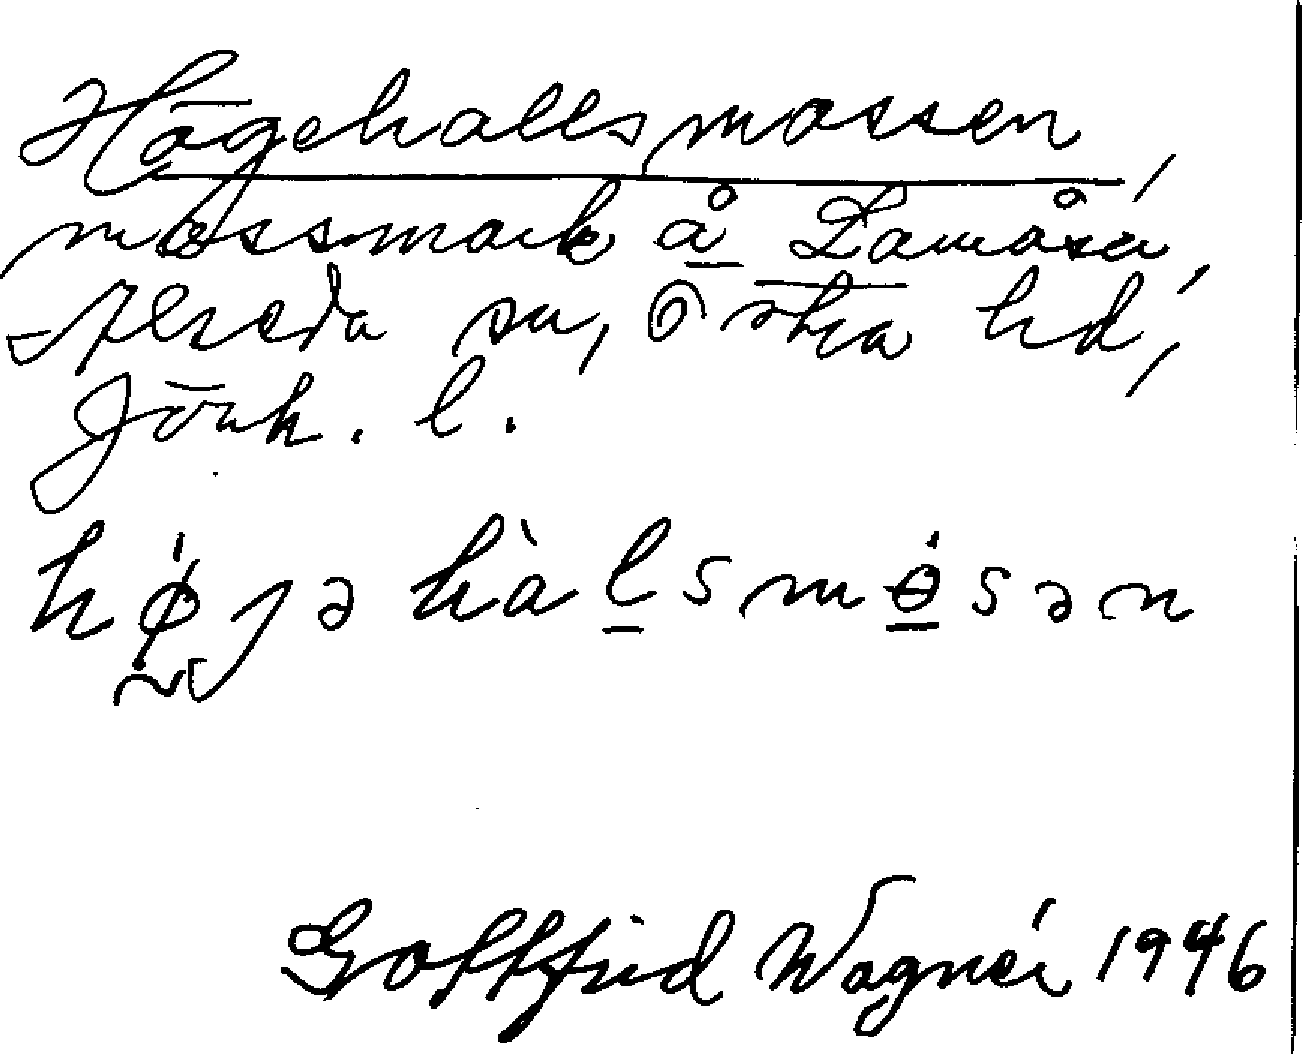 Högehallsmossen,
mossmark å Lamåsa,
Alseda sn, Östra hd,
Jönk. l.
hǿȷəhàl̠smɵ̠́sən
Gottfrid Wagnér 1946